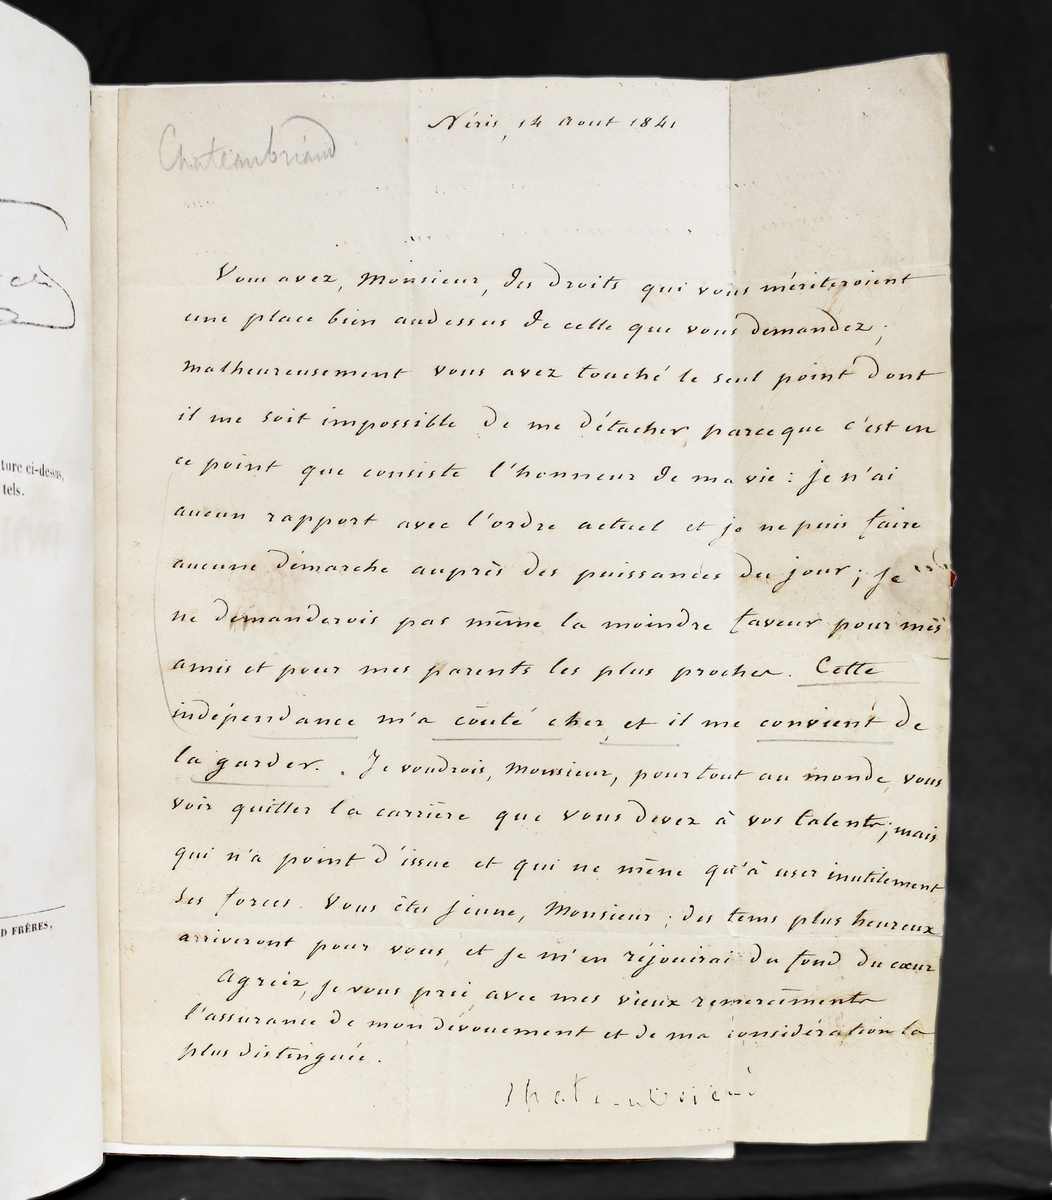 Néris, 14 aout 1841
Chateaubriand
Vous avez, Monsieur, des droits qui vous mériteroient
une place bien audessus de celle que vous demandez;
malheureusement vous avez touché le seul point dont
il me soit impossible de me détacher, parceque c'est en
ce point que consiste l'honneur de ma vie: je n'ai
aucun rapport avec l'ordre actuel et je ne puis faire
aucune démarche auprès des puissances du jour; je
ne demanderois pas même la moindre faveur pour mes
amis et pour mes parents les plus proches. Cette
indépendance m'a coûté cher, et il me convient de
la garder. Je voudrois, Monsieur, pour tout au monde, vous
voir quitter la carrière que vous devez à vos talents; mais
qui n'a point d'issue et qui ne mène qu'à user inutilement
ses forces. Vous êtes jeune, Monsieur; des tems plus heureux
arriveront pour vous, et je m'en réjouirai du fond du cœur
Agréez, je vous prie, avec mes vieux remerciments
l'assurance de mon dévouement et de ma considération la
plus distinguée.
Chateaubriand
ture ci-dessus,
tels.
D FRÈRES,